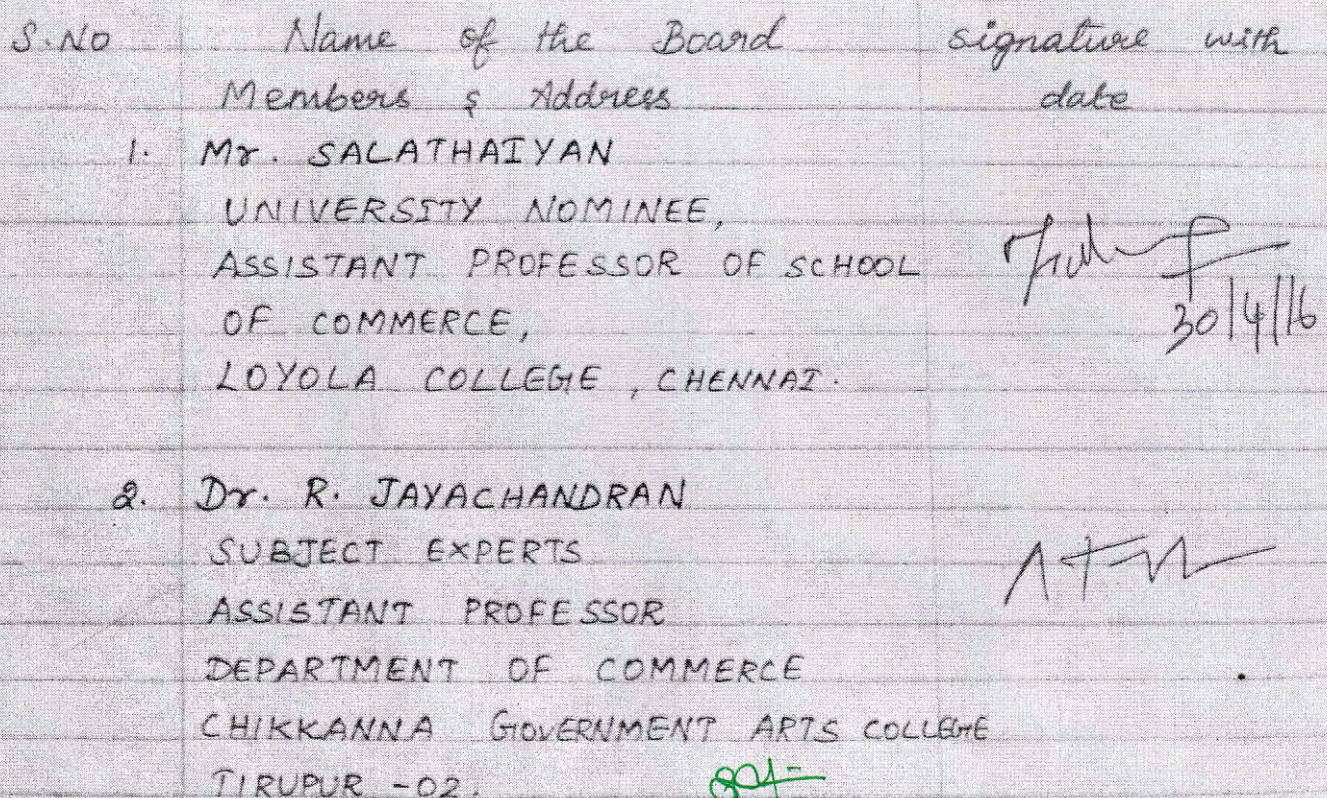 S.No Name of the Board signature with
Members & Address date
1. Mr. SALATHAIYAN
UNIVERSITY NOMINEE,
ASSISTANT PROFESSOR OF SCHOOL
OF COMMERCE,
30/4/16
LOYOLA COLLEGE, CHENNAI.
2. Dr. R. JAYACHANDRAN
SUBJECT EXPERTS
ASSISTANT PROFESSOR
DEPARTMENT OF COMMERCE
CHIKKANNA GOVERNMENT ARTS COLLEGE
TIRUPUR -02.